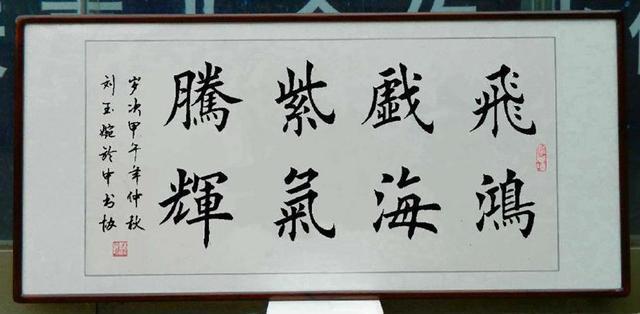 飛鴻
戲海
紫氣
騰輝
岁次甲午年仲秋
刘玉婉於中书协